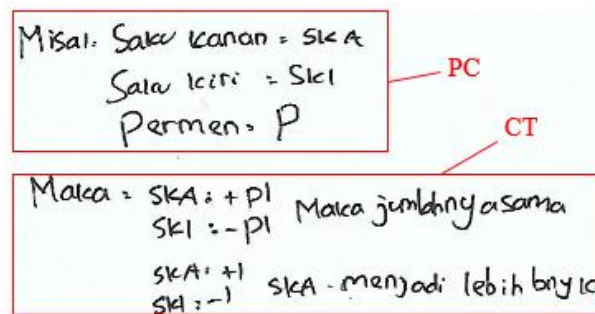 Misal: Saku kanan = SKA
Saku kiri = SKI
Permen = P
PC
CT
Maka = SKA : + P1
SKI : - P1
Maka jumlahnya sama
SKA : +1
SKI : -1
SKA menjadi lebih